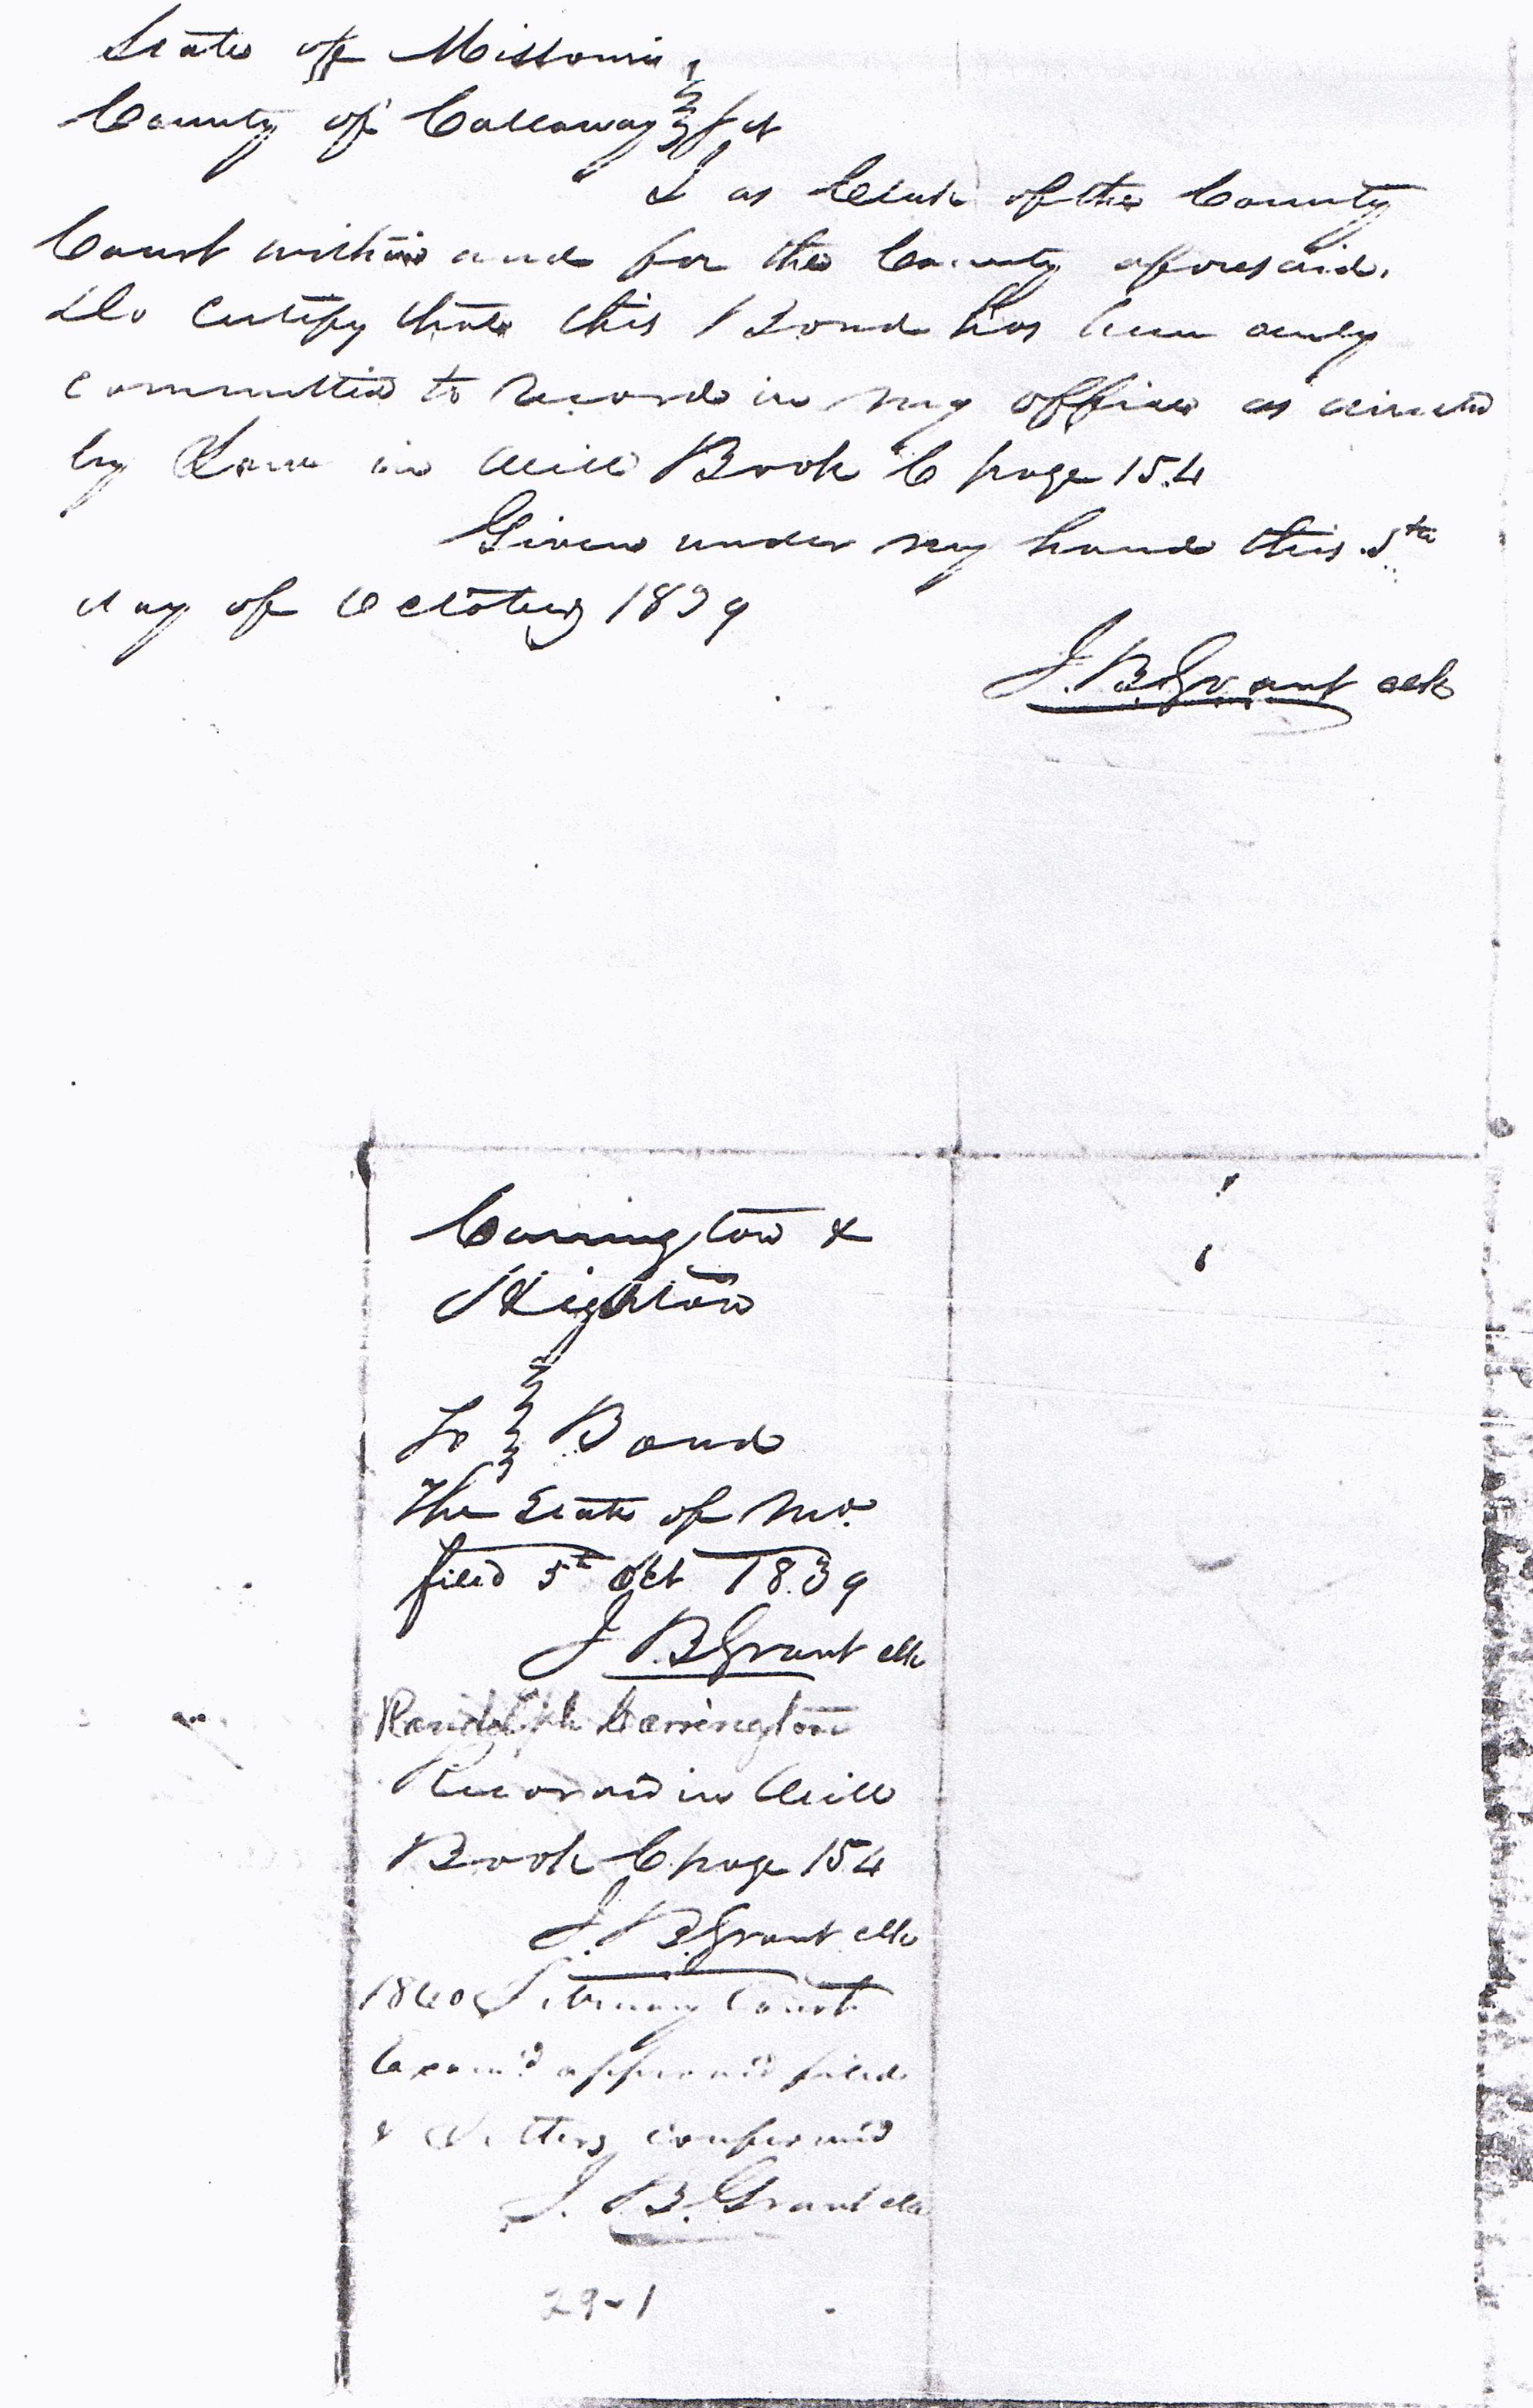 State of Missouri
County of Callaway } Sct
I as Clerk of the County
Court within and for the County aforesaid.
Do Certify that this Bond has been duly
committed to record in my office as directed
by Law in Will Book C page 154
Given under my hand this 5th
day of October 1839
J. B. Grant clk
Carrington &
Heighton
To } Bond
The State of Mo.
filed 5th Oct 1839
J. B. Grant clk
Randolph Carrington
Recorded in Will
Book C page 154
J. B. Grant clk
1840 February Court
Exam'd approv'd filed
& Letters confirm'd
J. B. Grant clk
29-1